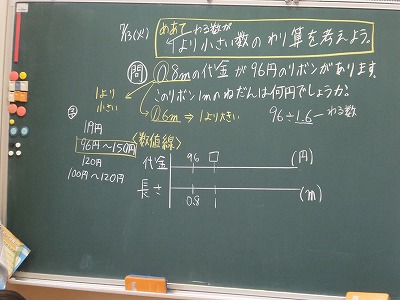 7/13(火)
めあて わる数が
1より小さい数のわり算を考えよう。
問 0.8mの代金が96円のリボンがあります。
このリボン1mのねだんは何円でしょうか。
1より
小さい
1.6m⇒1より大きい
96÷1.6 わる数
予
19円
96円〜150円
120円
100円〜120円
〈数直線〉
代金 96 □ (円)
長さ 0.8 1 (m)